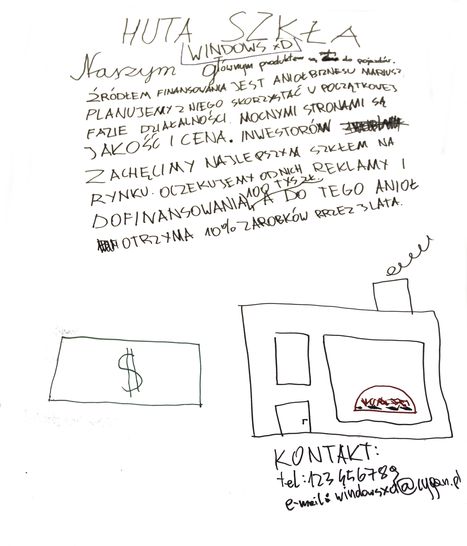 HUTA SZKŁA
WINDOWS xD
Naszym głównym produktem są do pojazdów.
ŹRÓDŁEM FINANSOWANIA JEST ANIOŁ BIZNESU MARIUSZ
PLANUJEMY Z NIEGO SKORZYSTAĆ W POCZĄTKOWEJ
FAZIE DZIAŁALNOŚCI. MOCNYMI STRONAMI SĄ
JAKOŚĆ I CENA. INWESTORÓW
ZACHĘCIMY NAJLEPSZYM SZKŁEM NA
RYNKU. OCZEKUJEMY OD NICH REKLAMY I
100 TYŚ ZŁ
DOFINANSOWANIA, A DO TEGO ANIOŁ
OTRZYMA 10% ZAROBKÓW PRZEZ 3 LATA.
$
KONTAKT:
tel: 123 456 789
e-mail: windowsxd@cygan.pl